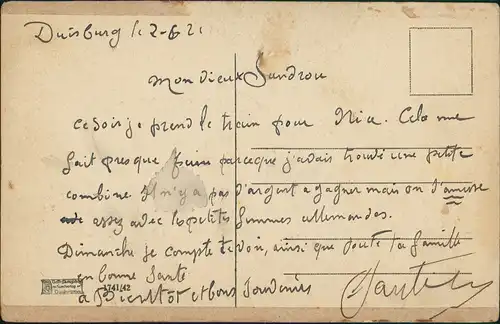 Duisburg le 2-6 21
Mon Dieux
ce soir je prend le train pour Nice. Cela me
fait presque parceque j'avais trouvé une petite
combine. Il n'y a pas d'argent a gagner mais on s'amuse
assez avec les petites femmes allemandes.
Dimanche je compte te voir, ainsi que toute ta famille
en bonne santé
a Bientôt et bons Souvenirs
1741/42